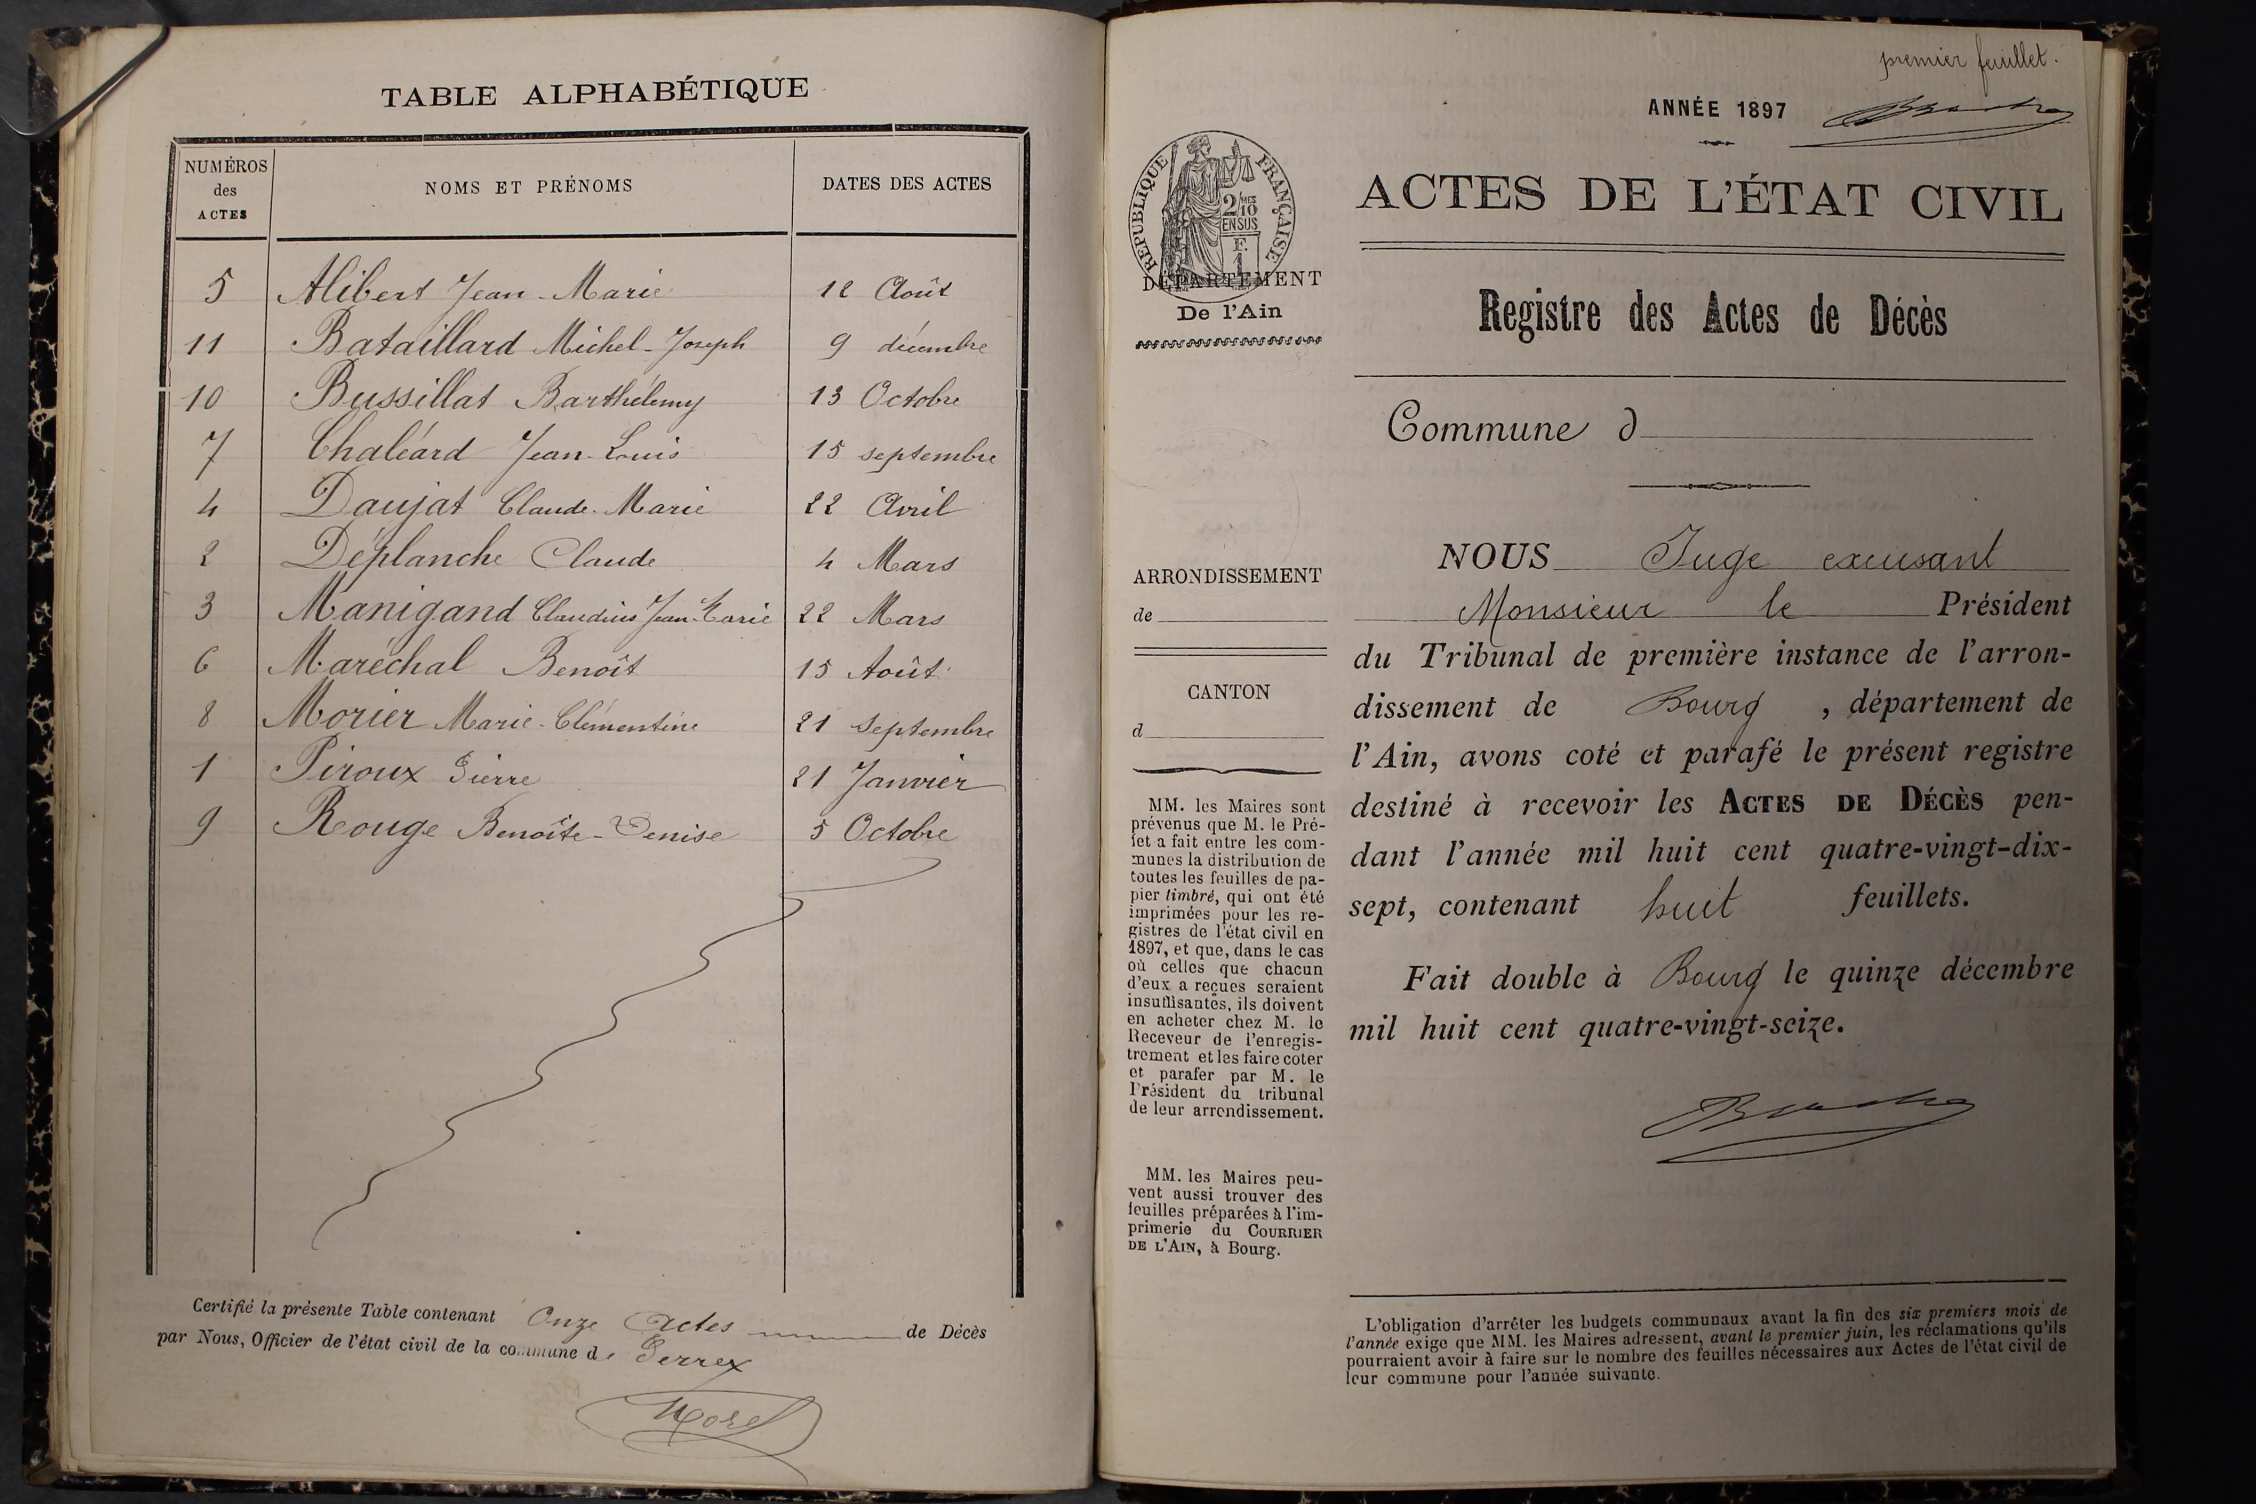 TABLE ALPHABÉTIQUE
NUMÉROS des ACTES NOMS ET PRÉNOMS DATES DES ACTES
5 Alibert Jean-Marie 12 Août
11 Bataillard Michel-Joseph 9 décembre
10 Bussillat Barthélemy 13 Octobre
7 Chaléard Jean-Louis 15 septembre
4 Daujat Claude-Marie 22 Avril
2 Déplanche Claude 4 Mars
3 Manigand Claudius Jean-Marie 22 Mars
6 Maréchal Benoît 15 Août
8 Morier Marie-Clémentine 21 septembre
1 Piroux Pierre 21 Janvier
9 Rouge Benoîte-Denise 5 Octobre
Certifié la présente Table contenant Onze Actes de Décès
par Nous, Officier de l'état civil de la commune de Perrex
Morel
premier feuillet.
ANNÉE 1897
RÉPUBLIQUE FRANÇAISE
2 MES
10
EN SUS
F.
1
ACTES DE L'ÉTAT CIVIL
DÉPARTEMENT
De l'Ain
Registre des Actes de Décès
Commune d
ARRONDISSEMENT
de
CANTON
d
MM. les Maires sont
prévenus que M. le Pré-
fet a fait entre les com-
munes la distribution de
toutes les feuilles de pa-
pier timbré, qui ont été
imprimées pour les re-
gistres de l'état civil en
1897, et que, dans le cas
où celles que chacun
d'eux a reçues seraient
insuffisantes, ils doivent
en acheter chez M. le
Receveur de l'enregis-
trement et les faire coter
et parafer par M. le
Président du tribunal
de leur arrondissement.
MM. les Maires peu-
vent aussi trouver des
feuilles préparées à l'im-
primerie du COURRIER
DE L'AIN, à Bourg.
NOUS Juge excusant
Monsieur le Président
du Tribunal de première instance de l'arron-
dissement de Bourg, département de
l'Ain, avons coté et parafé le présent registre
destiné à recevoir les ACTES DE DÉCÈS pen-
dant l'année mil huit cent quatre-vingt-dix-
sept, contenant huit feuillets.
Fait double à Bourg le quinze décembre
mil huit cent quatre-vingt-seize.
L'obligation d'arrêter les budgets communaux avant la fin des six premiers mois de
l'année exige que MM. les Maires adressent, avant le premier juin, les réclamations qu'ils
pourraient avoir à faire sur le nombre des feuilles nécessaires aux Actes de l'état civil de
leur commune pour l'année suivante.